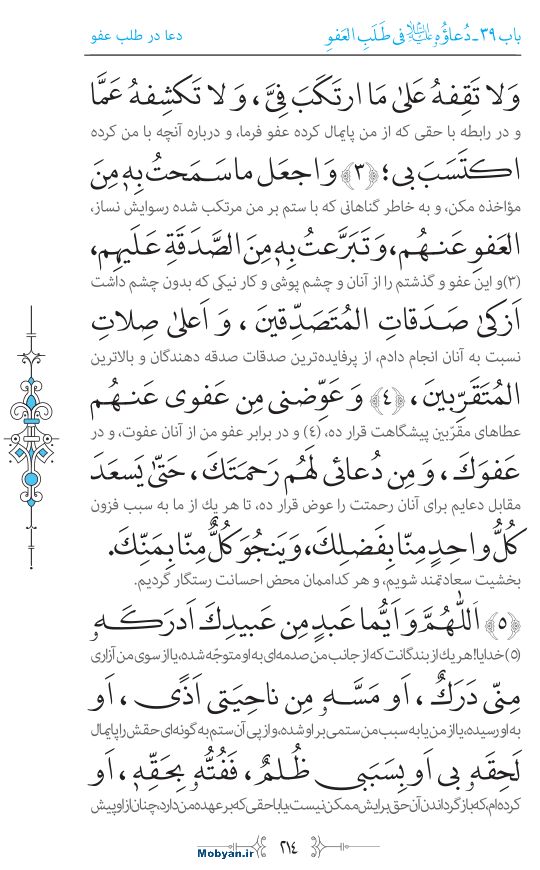 باب ۳۹ـ دُعاؤُهُ علیه‌السلام فی طَلَبِ العَفوِ دعا در طلب عفو
وَلا تَقِفهُ عَلیٰ مَا ارتَکَبَ فِیَّ، وَ لا تَکشِفهُ عَمَّا
و در رابطه با حقی که از من پایمال کرده عفو فرما، و درباره آنچه با من کرده
اکتَسَبَ بی؛ ﴿۳﴾ وَ اجعَل ما سَمَحتُ بِهٖ مِنَ
مؤاخذه مکن، و به خاطر گناهانی که با ستم بر من مرتکب شده رسوایش نساز،
العَفوِ عَنهُم، وَ تَبَرَّعتُ بِهٖ مِنَ الصَّدَقَةِ عَلَیهِم،
(۳) و این عفو و گذشتم را از آنان و چشم پوشی و کار نیکی که بدون چشم داشت
اَزکیٰ صَدَقاتِ المُتَصَدِّقینَ، وَ اَعلیٰ صِلاتِ
نسبت به آنان انجام دادم، از پرفایده‌ترین صدقات صدقه دهندگان و بالاترین
المُتَقَرِّبینَ، ﴿٤﴾ وَ عَوِّضنی مِن عَفوی عَنهُم
عطاهای مقرّبین پیشگاهت قرار ده، (٤) و در برابر عفو من از آنان عفوت، و در
عَفوَكَ، وَ مِن دُعائی لَهُم رَحمَتَكَ، حَتّیٰ یَسعَدَ
مقابل دعایم برای آنان رحمتت را عوض قرار ده، تا هر یك از ما به سبب فزون
کُلُّ واحِدٍ مِنّا بِفَضلِكَ، وَ یَنجُوَ کُلٌّ مِنّا بِمَنِّكَ.
بخشیت سعادتمند شویم، و هر کداممان محض احسانت رستگار گردیم.
﴿۵﴾ اَللّٰهُمَّ وَ اَیُّما عَبدٍ مِن عَبیدِكَ اَدرَکَهٗ
(۵) خدایا! هر یك از بندگانت که از جانب من صدمه‌ای به او متوجّه شده، یا از سوی من آزاری
مِنّی دَرَكٌ، اَو مَسَّهٗ مِن ناحِیَتی اَذًی، اَو
به او رسیده، یا از من یا به سبب من ستمی بر او شده، و از پی آن ستم به گونه‌ای حقش را پایمال
لَحِقَهٗ بی اَو بِسَبَبی ظُلمٌ، فَفُتُّهٗ بِحَقِّهٖ، اَو
کرده‌ام، که باز گرداندن آن حق برایش ممکن نیست، یا با حقی که بر عهده من دارد، چنان از او پیش
۲۱٤
Mobyan.ir